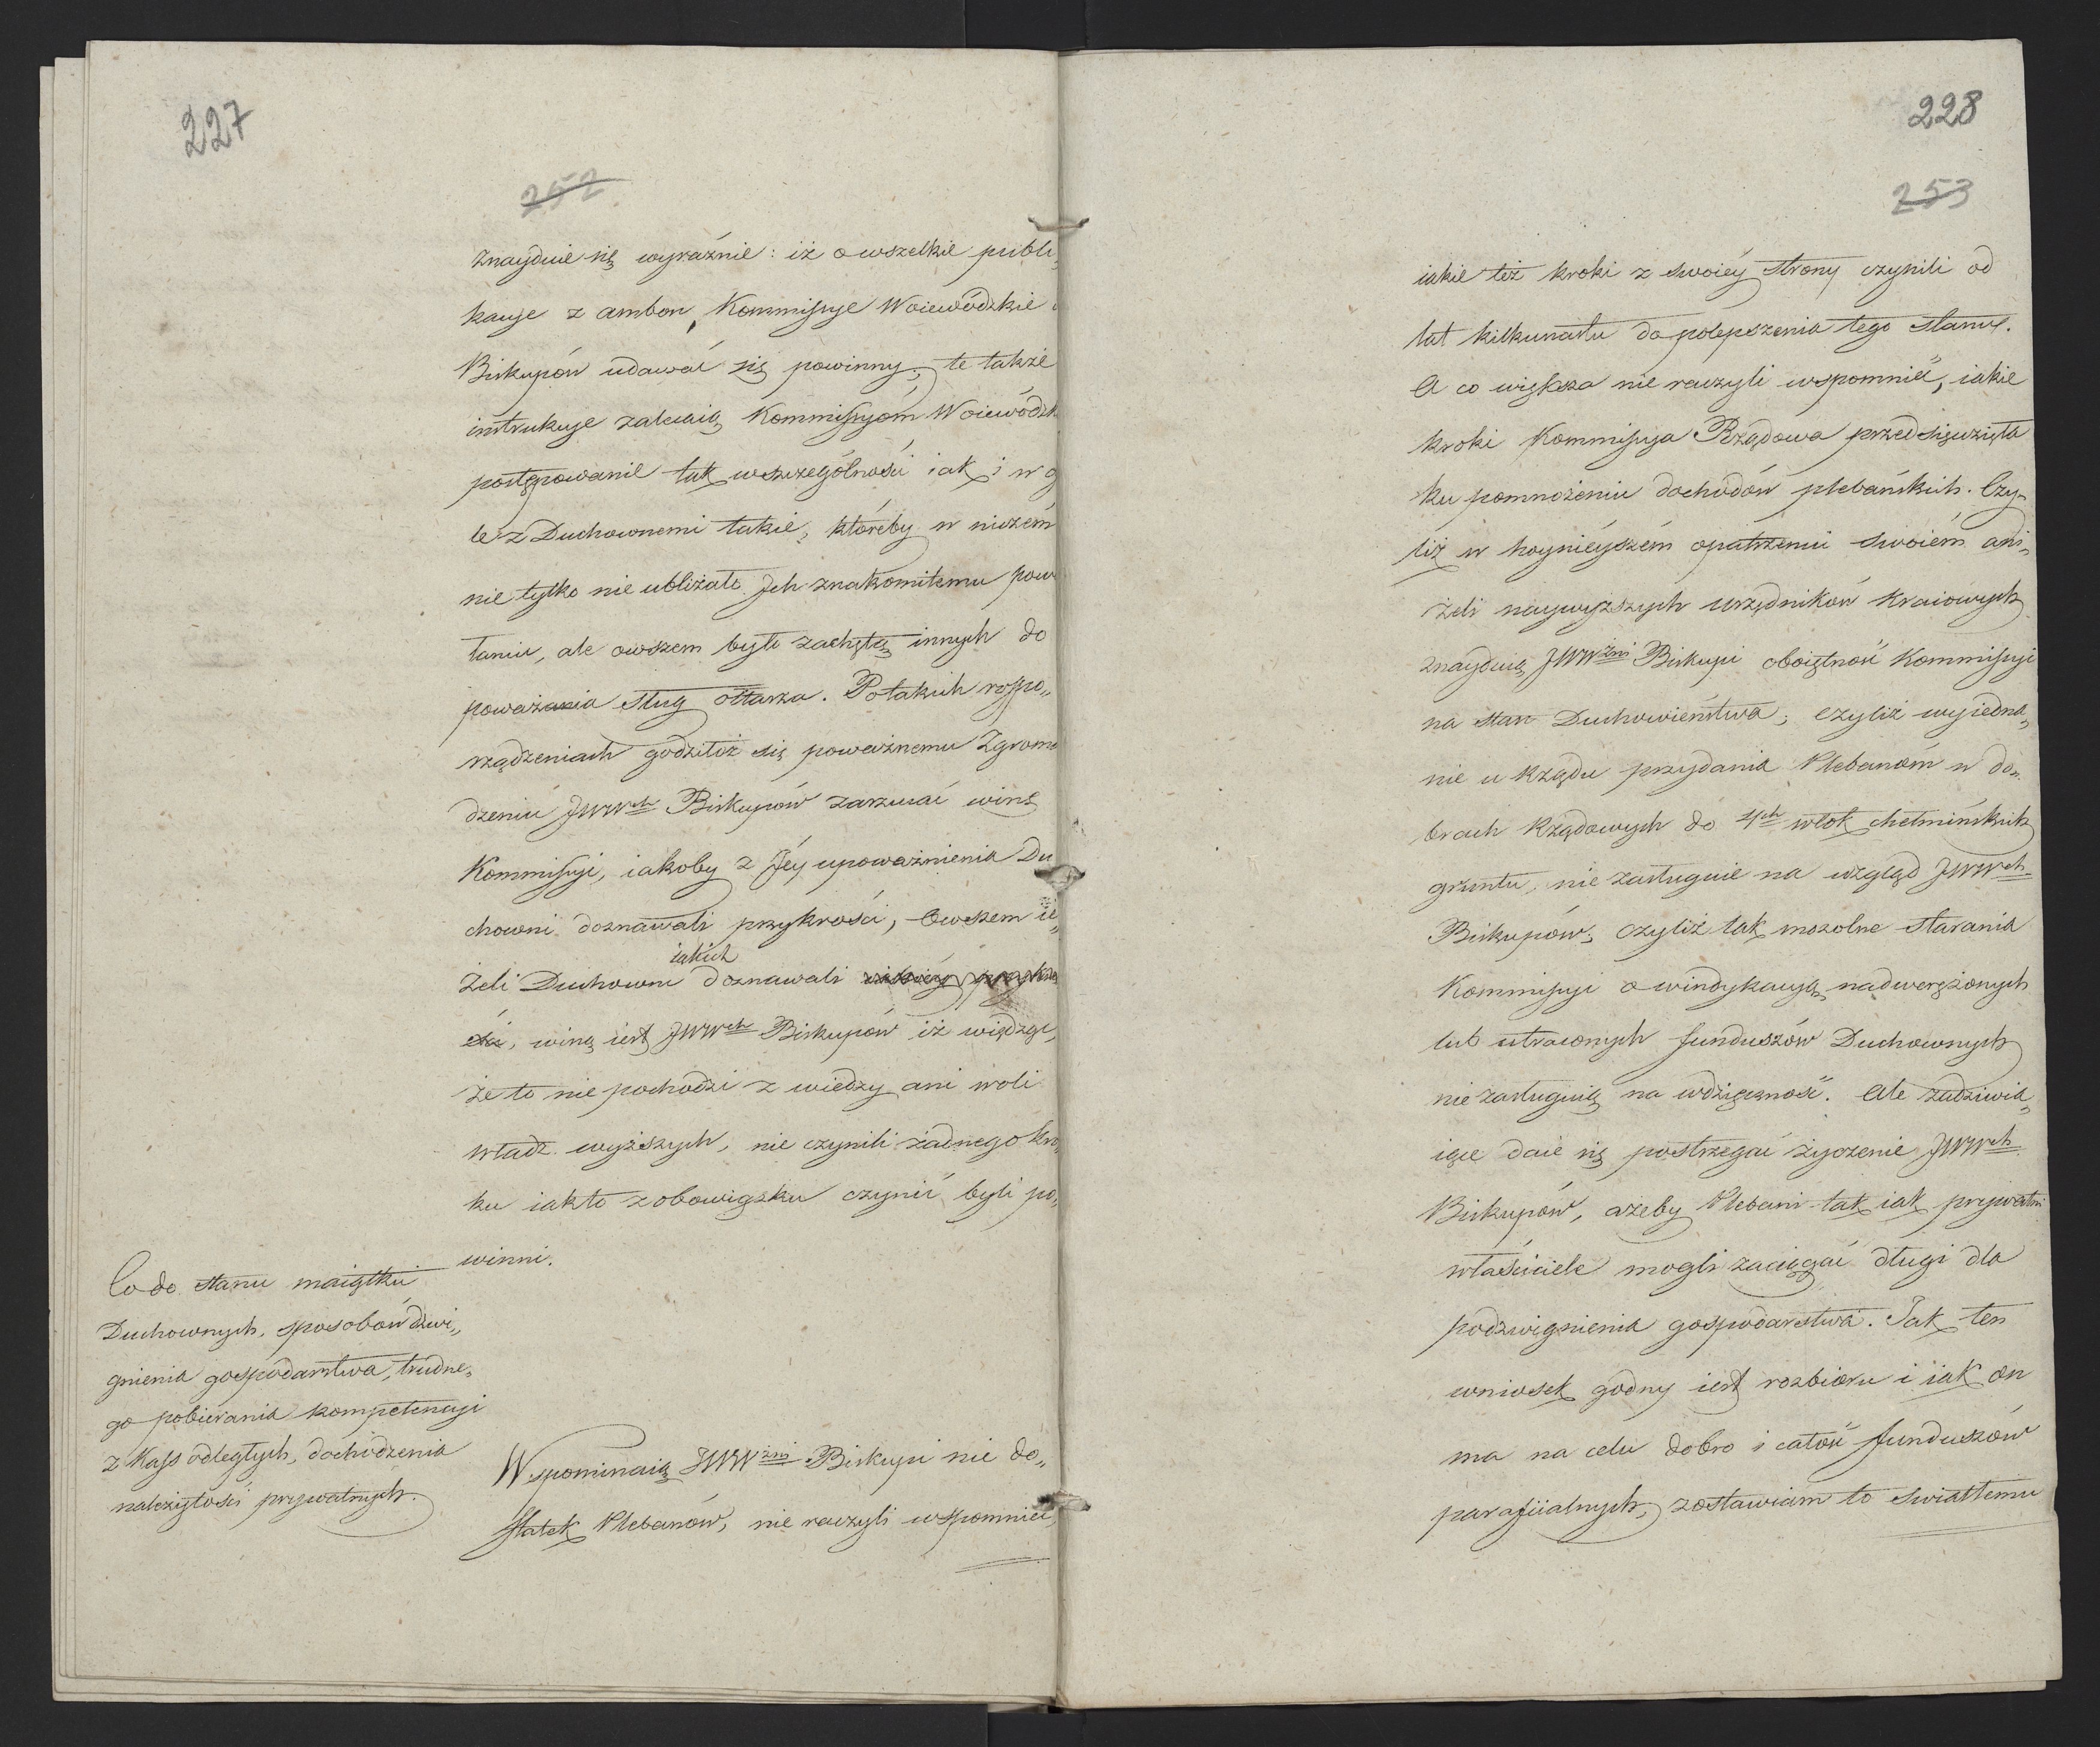 227
252
Znayduie się wyraźnie: iż o wszelkie publi„
kacye z ambon, Kommissye Woiewódzkie
Biskupów udawać się powinny; te także
instrukcye zalecaią Kommissyóm Woiewódzk
postępowanie tak w szczególności iak i w og
le z Duchownemi takie, któreby w niczém
nie tylko nie ubliżało Ich znakomitemu powo
łaniu, ale owszem było zachętą innych do
poważania sług ołtarza. Po takich rospo„
rządzeniach godziłoż się poważnemu Zgroma
dzeniu JWWch Biskupów zarzucać winę
Kommissyi, iakoby z Jéy upoważnienia Du
chowni doznawali przykrości, Owszem ie„
iakich
żeli Duchowni doznawali przykro
ści, winą iest JWWch Biskupów iż wiedząc,
że to nie pochodzi z wiedzy ani woli
władz wyższych, nie czynili żadnego kro„
ku iak to z obowiązku czynić byli po„
winni.
Co do stanu maiątku
Duchownych, sposobów dzwi„
gnienia gospodarstwa, trudne„
go pobierania kompetencyi
z Kass odległych, dochodzenia
należytości prywatnych.
Wspominaią JWWżni Biskupi nie do„
statek Plebanów, nie raczyli wspomnieć,
228
253
iakie téż kroki z swoiéy strony czynili od
lat kilkunastu do polepszenia tego stanu.
A co większa nie raczyli wspomnieć, iakie
kroki Kommissya Rządowa przedsięwzięła
ku pomnożeniu dochodów plebańskich. Czy„
liż w hoynieyszém opatrzeniu swoiém ani„
żeli naywyższych urzędników kraiowych
znayduią JWWżni Biskupi oboiętność Kommissyi
na stan Duchowieństwa; czyliż wyiedna„
nie u Rządu przydania Plebanóm w do„
brach Rządowych do 4ch włók chełmińskich
gruntu, nie zasługuie na wzgląd JWWch
Biskupów; czyliż tak mozolne starania
Kommissyi o windykacyą nadwerężonych
lub utraconych funduszów Duchownych
nie zasługuią na wdzięczność. Ale zadziwia„
iące daie się postrzegać życzenie JWWch
Biskupów, ażeby Plebani tak iak prywatni
właściciele mogli zaciągać długi dla
podzwignienia gospodarstwa. Jak ten
wniosek godny iest rozbioru i iak on
ma na celu dobro i całość funduszów
parafiialnych, zostawiam to swiatłemu